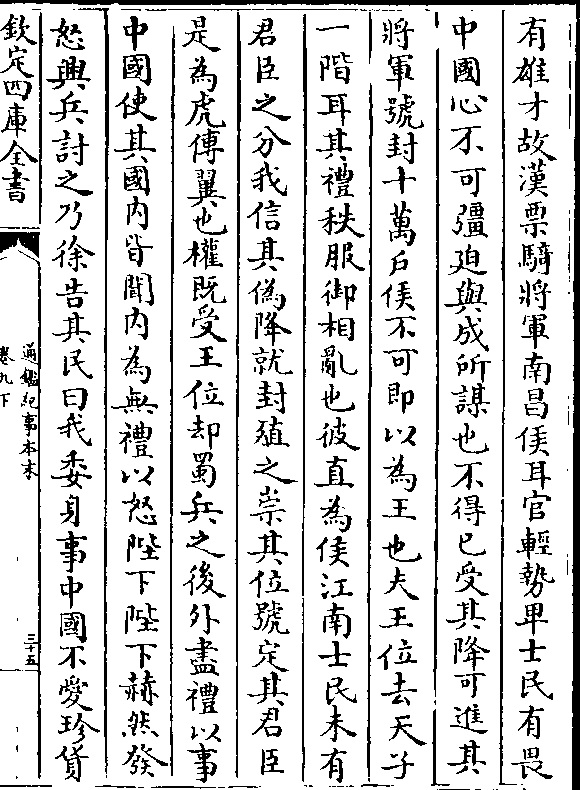 有雄才故漢票騎將軍南昌侯耳官輕勢卑士民有畏
中國心不可彊廹與成所謀也不得已受其降可進其
將軍號封十萬戶侯不可即以為王也夫王位去天子
一階耳其禮秩服御相亂也彼直為侯江南士民未有
君臣之分我信其偽降就封殖之崇其位號定其君臣
是為虎傅翼也權既受王位却蜀兵之後外盡禮以事
中國使其國內皆聞內為無禮以怒陛下陛下赫然發
怒興兵討之乃徐告其民曰我委身事中國不愛珍貨
欽定四庫全書
通鑑紀事本末
卷九下
三十五